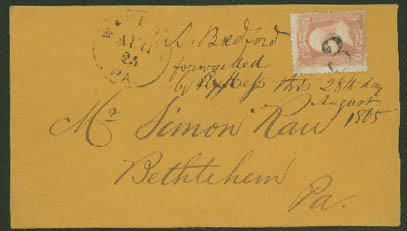 AUG
25
PA
S. Bedford
forwarded
by this 28th day
August 1865
Mr Simon Rau
Bethlehem
Pa.